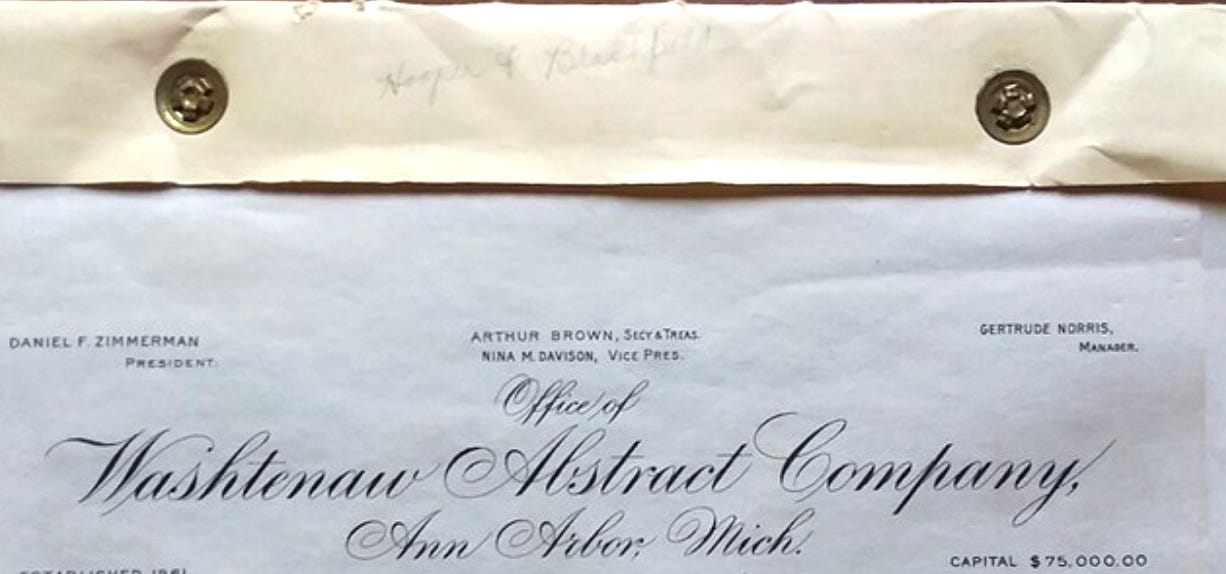 Hooper & Blashfield
DANIEL F. ZIMMERMAN
PRESIDENT.
ARTHUR BROWN, SECY & TREAS.
NINA M. DAVISON, VICE PRES.
GERTRUDE NORRIS,
MANAGER.
Office of
Washtenaw Abstract Company,
Ann Arbor, Mich.
CAPITAL $75,000.00
ESTABLISHED 1861